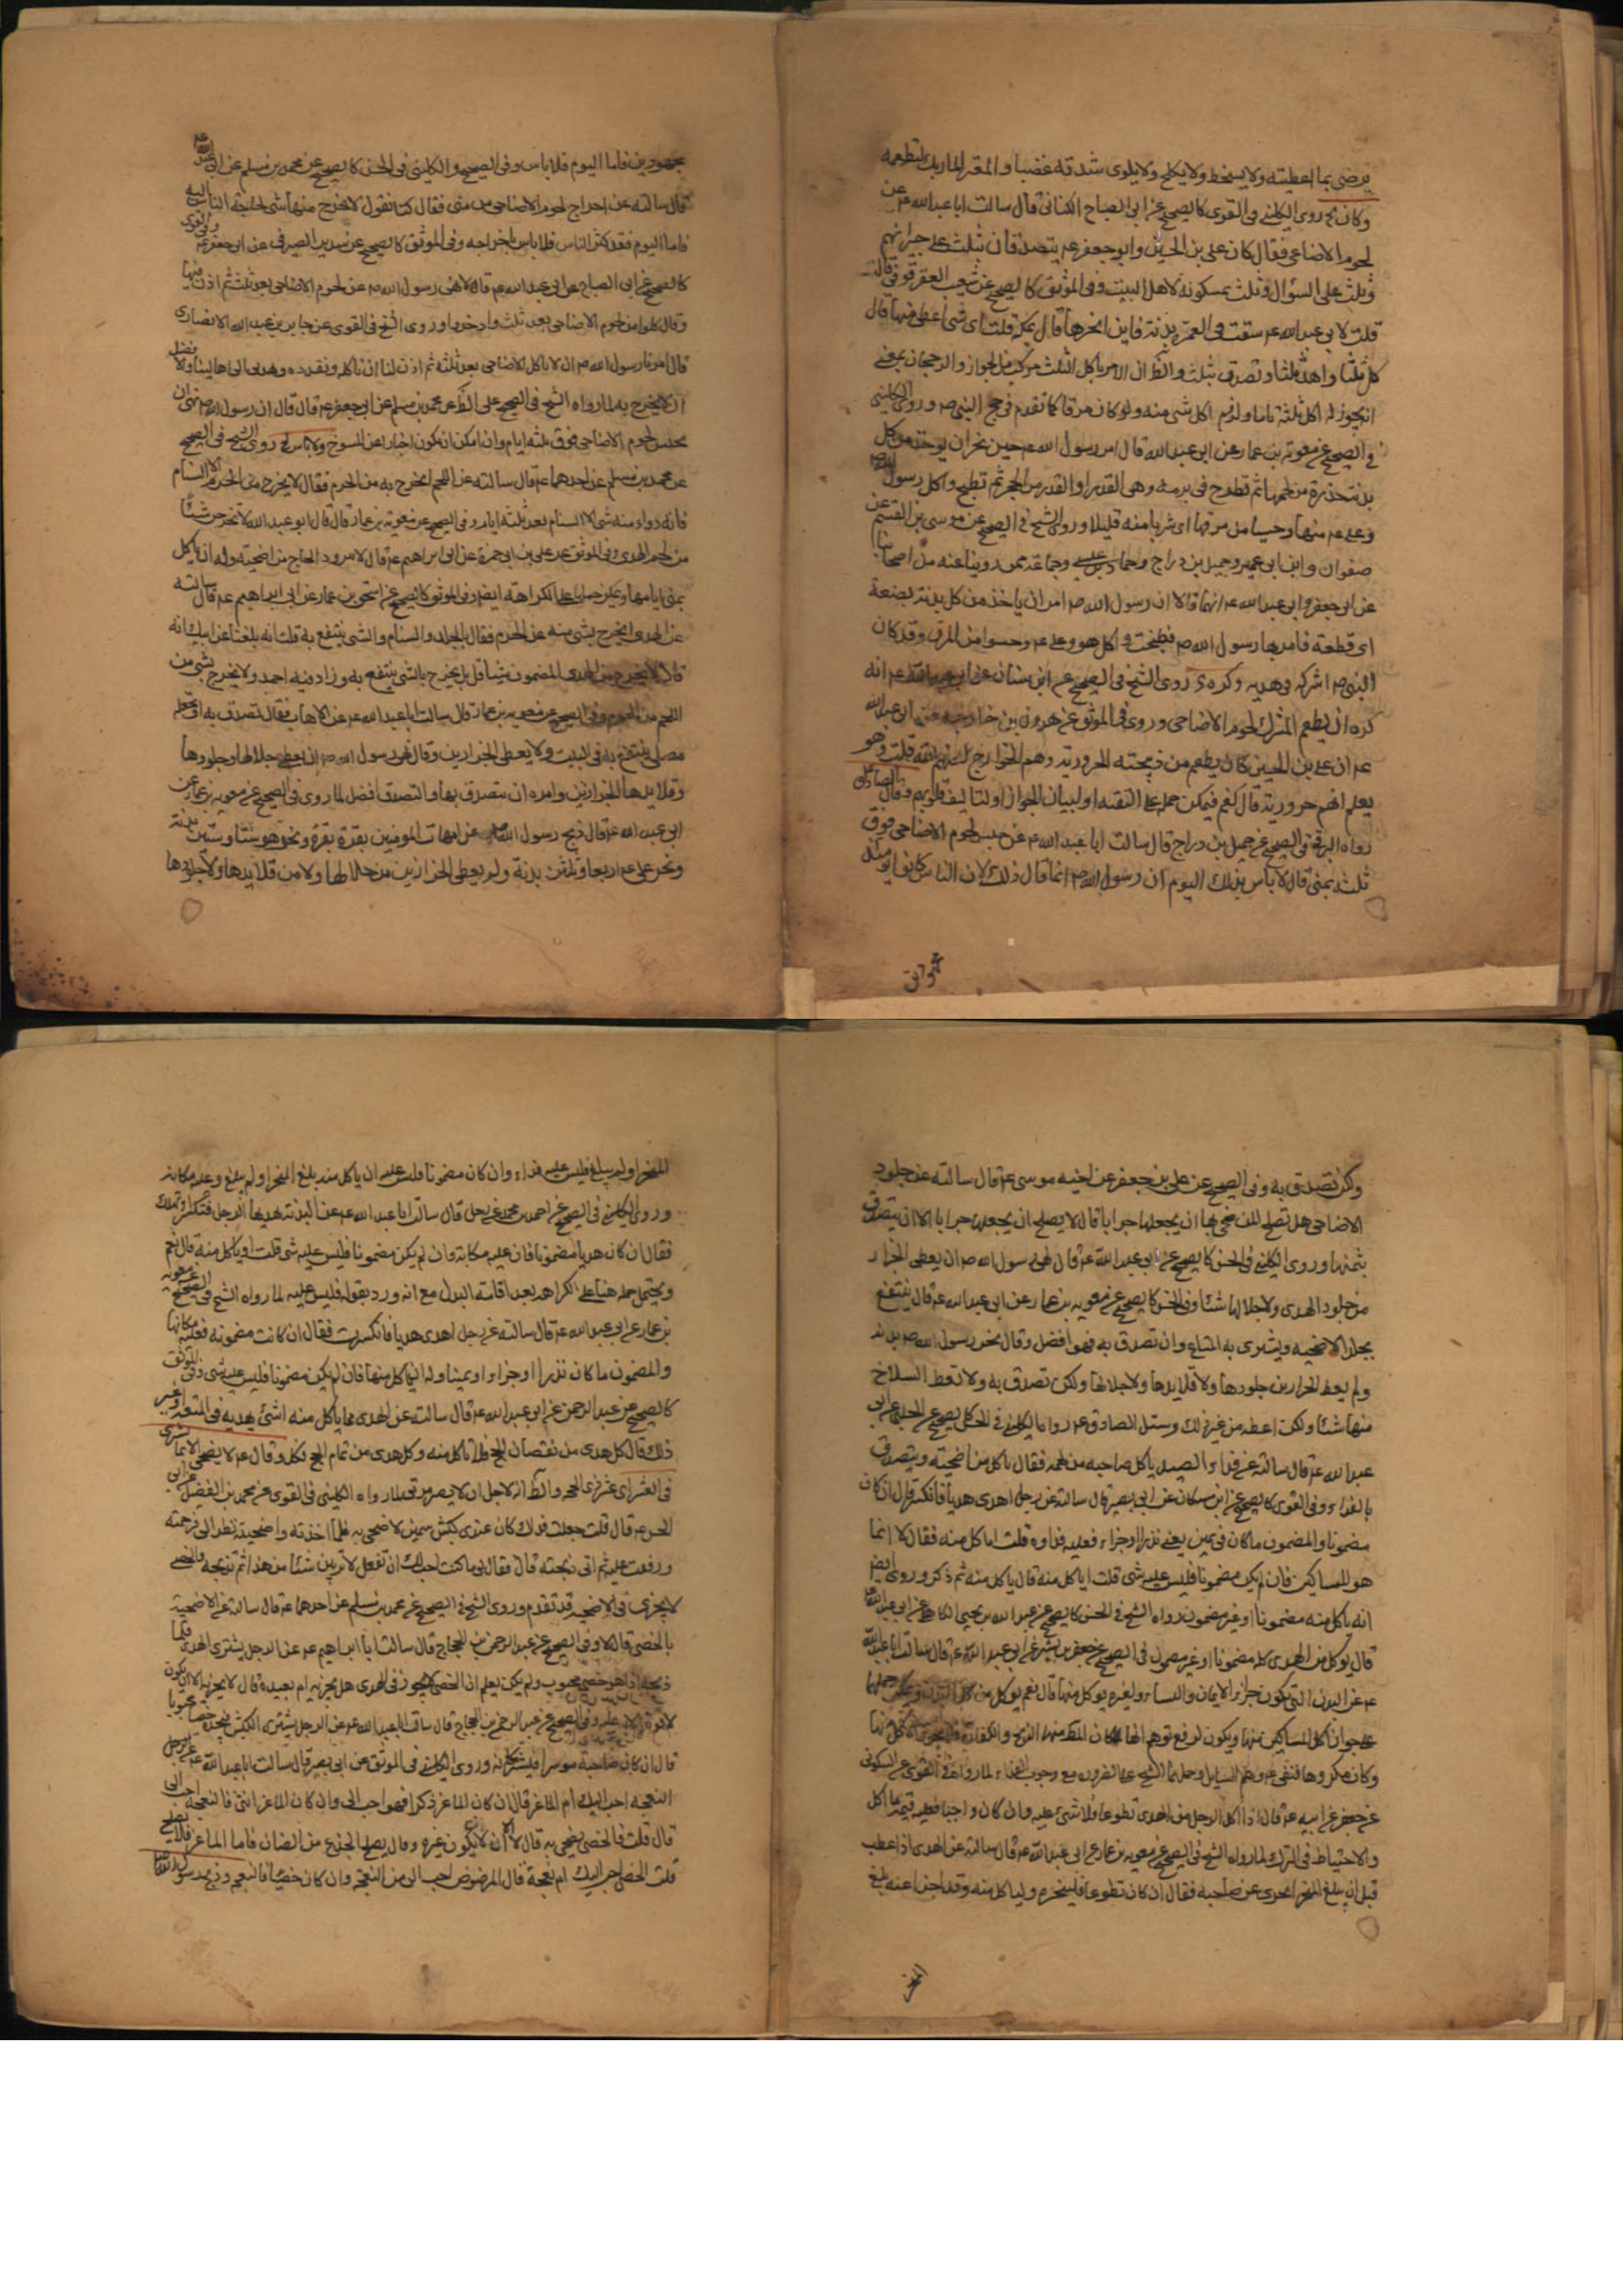 يرضى بما اعطيته ولا يسخط ولا يكلح ولا يلوى شدقه غضبا و المعتر المار بك لتطعمه
وكان روى الكليني في القوى كالصحيح عن ابي الصباح الكناني قال سالت ابا عبد الله ع عن
لحوم الاضاحى فقال كان على بن الحسين وابو جعفر ع يتصدقان بثلث على جيرانهم
وثلث على السؤال وثلث يمسكونه لاهل البيت وفي الموثق كالصحيح عن شعيب العقرقوفى قال
قلت لابي عبد الله ع سقت في العمرة بدنة فاين انحرها قال بمكة قلت اى شئ اعطى منها قال
كل ثلثا واهد ثلثا وتصدق بثلث والظ ان الامر باكل الثلث مركب من الجواز والرجحان بمعنى
انه يجوز له اكل ثلثه تاما ولزم اكل شئ منه ولو كان مرقا كما تقدم في حج النبي ص وروى الكليني
في الصحيح عن معوية بن عمار عن ابي عبد الله قال امر رسول الله ص حين نحر ان يوخذ من كل
بدنة حذوة من لحمها ثم تطرح في برمة وهى القدر او القدر من الحجر ثم تطبخ واكل رسول الله ص
وعلى ع منها وحسيا من مرقها اى شربا منه قليلا وروى الشيخ في الصحيح عن موسى بن القسم عن
صفوان وابن ابي عمير وجميل بن دراج وحماد بن عيسى وجماعة ممن روينا عنه من اصحابنا
عن ابي جعفر وابي عبد الله ع انهما قالا ان رسول الله ص امر ان ياخذ من كل بدنة بضعة
اى قطعة فامر بها رسول الله ص فطبخت واكل هو وعلى ع وحسوا من المرق وقد كان
النبي ص اشركه في هديه وكره روى الشيخ في الصحيح عن ابن سنان عن ابي عبد الله ع انه
كره ان يطعم المشرك لحوم الاضاحى وروى في الموثق عن هرون بن خارجة عن ابي عبد الله
ع ان على بن الحسين كان يطعم من ذبيحته الحرورية وهم الخوارج قلت وهو
يعلم انهم حرورية قال نعم فيمكن حمله على التقية او لبيان الجواز او لتاليف قلوبهم وقال الصادق ع
رواه البرقى في الصحيح عن جميل بن دراج قال سالت ابا عبد الله ع عن حبس لحوم الاضاحى فوق
ثلث بمنى قال لا باس بذلك اليوم ان رسول الله ص انما قال ذلك لان الناس كانوا يومئذ
مجهودين فاما اليوم فلا باس وفي الصحيح والكليني في الحسن كالصحيح عن محمد بن مسلم عن ابي عبد الله ع
قال سالته عن اخراج لحوم الاضاحى من منى فقال كنا نقول لا يخرج منها شئ لحاجة الناس اليه
فاما اليوم فقد كثر الناس فلا باس باخراجه وفي الموثق كالصحيح عن سدير الصيرفى عن ابي جعفر ع وفي القوى
كالصحيح عن ابي الصباح عن ابي عبد الله ع قالا نهى رسول الله ص عن لحوم الاضاحى بعد ثلث ثم اذن فيها
وقال كلوا من لحوم الاضاحى بعد ثلث وادخروا وروى الشيخ في القوى عن جابر بن عبد الله الانصارى
قال امرنا رسول الله ص ان لا ناكل الاضاحى بعد ثلثة ثم اذن لنا ان ناكله ونقدده ونهدى الى اهالينا والافضل
ان لا يخرج به لما رواه الشيخ في الصحيح على الظ عن محمد بن مسلم عن ابي جعفر ع قال قال ان رسول الله ص نهى ان
تحبس لحوم الاضاحى فوق ثلثة ايام وان امكن ان يكون اخبارا عن المنسوخ ولا باس روى الشيخ في الصحيح
عن محمد بن مسلم عن احدهما ع قال سالته عن اللحم ايخرج به من الحرم فقال لا يخرج من الحرم الا السنام
فانه دواء منه شئ الا السنام بعد ثلثة ايام وفي الصحيح عن معوية بن عمار قال قال ابو عبد الله لا تخرجن شيئا
من لحم الهدى وفي الموثق عن على بن ابي حمزة عن ابي ابراهيم ع قال لا يتزود الحاج من اضحيته وله ان ياكل
بمنى ايامها ويمكن حملها على الكراهة ايضا وفي الموثق كالصحيح عن اسحق بن عمار عن ابي ابراهيم ع قال سالته
عن الهدى ايخرج بشئ منه عن الحرم فقال بالجلد والسنام والشئ ينتفع به قلت انه بلغنا عن ابيك انه
قال لا يخرج من الهدى المضمون شيئا قال بل يخرج بالشئ ينتفع به وزاد فيه احمد ولا يخرج بشئ من
اللحم من الحرم وفي الصحيح عن معوية بن عمار قال سالت ابا عبد الله ع عن الاهاب فقال تصدق به او تجعله
مصلى ينتفع به في البيت ولا يعطى الجزارين وقال نهى رسول الله ص ان يعطى جلالها وجلودها
وقلايدها الجزارين وامره ان يتصدق بها والتصدق افضل لما روى في الصحيح عن معوية بن عمار عن
ابي عبد الله ع قال ذبح رسول الله ص عن امهات المومنين بقرة بقرة ونحر هو ستا وستين بدنة
ونحر على ع اربعا وثلثين بدنة ولم يعطى الجزارين من جلالها ولا من قلايدها ولا جلودها
ولكن تصدق به وفي الصحيح عن على بن جعفر عن اخيه موسى ع قال سالته عن جلود
الاضاحى هل تصلح لمن ضحى بها ان يجعلها جرابا قال لا يصلح ان يجعلها جرابا الا ان يتصدق
بثمنها وروى الكليني في الحسن كالصحيح عن ابي عبد الله ع قال نهى رسول الله ص ان يعطى الجزار
من جلود الهدى ولا جلالها شيئا وفي الحسن كالصحيح عن معوية بن عمار عن ابي عبد الله ع قال ينتفع
بجلد الاضحية ويشترى به المتاع وان تصدق به فهو افضل وقال نحر رسول الله ص بدنة
ولم يعط الجزارين جلودها ولا قلايدها ولا جلالها ولكن تصدق به ولا تعط السلاخ
منها شيئا ولكن اعطه من غير ذلك وسئل الصادق ع رواه الكليني في الحسن كالصحيح عن الحلبي عن ابي
عبد الله ع قال سالته عن فداء الصيد ياكل صاحبه من لحمه فقال ياكل من اضحيته ويتصدق
بالفداء وفي القوى كالصحيح عن ابن مسكان عن ابي بصير قال سالته عن رجل اهدى هديا فانكسر قال ان كان
مضمونا والمضمون ما كان في يمين يعنى نذرا او جزاء فعليه فداوه قلت اياكل منه فقال لا انما
هو للمساكين فان لم يكن مضمونا فليس عليه شئ قلت اياكل منه قال ياكل منه ثم ذكر وروى ايضا
انه ياكل منه مضمونا او غير مضمون رواه الشيخ في الحسن كالصحيح عن عبد الله بن يحيى الكاهلى عن ابي عبد الله ع
قال يوكل من الهدى كله مضمونا او غير مضمون في الصحيح عن جعفر بن بشير عن ابي عبد الله ع قال سالت ابا عبد الله
ع عن البدن التي تكون جزاء الايمان والنساء ولغيره يوكل منها قال نعم يوكل من كل البدن ويمكن حملها
على جواز اكل المساكين منها ويكون لدفع توهم
وكان مكروها فنفى وحملها الشيخ على الضرورة مع وجوب الفداء لما رواه في القوى عن السكونى
عن جعفر عن ابيه ع قال اذا اكل الرجل من الهدى تطوعا فلا شئ عليه وان كان واجبا فعليه قيمة ما اكل
والاحتياط في الترك لما رواه الشيخ في الصحيح عن معوية بن عمار عن ابي عبد الله ع قال سالته عن الهدى اذا عطب
قبل ان يبلغ المنحر ايجزى عن صاحبه فقال ان كان تطوعا فلينحره ولياكل منه وقد اجزا عنه بلغ
المنحر او لم يبلغ فليس عليه فداء وان كان مضمونا فليس عليه ان ياكل منه بلغ المنحر او لم يبلغ وعليه مكانه
وروى الكليني في الصحيح عن احمد بن محمد عن رجل قال سالت ابا عبد الله ع عن البدنة يهديها الرجل فتكسر او تهلك
فقال ان كان هديا مضمونا فان عليه مكانه وان لم يكن مضمونا فليس عليه شئ قلت او ياكل منه قال نعم
ويحتمل حمله هنا على الكراهة بعد اقامة البدل مع انه ورد بقوله فليس عليه لما رواه الشيخ في الصحيح عن معوية
بن عمار عن ابي عبد الله ع قال سالته عن رجل اهدى هديا فانكسرت فقال ان كانت مضمونة فعليه مكانها
والمضمون ما كان نذرا او جزاء او يمينا وله ان ياكل منها فان لم يكن مضمونا فليس عليه شئ وفي الموثق
كالصحيح عن عبد الرحمن عن ابي عبد الله ع قال سالته عن الهدى ما ياكل منه اشئ يهديه في المتعة او غير
ذلك قال كل هدى من نقصان الحج فلا تاكل منه وكل هدى من تمام الحج فكل وقال ع لا يضحى الا بما يشترى
في العشر اى عشر ذى الحجة والظ انه لاجل ان لا يصير مربى لما رواه الكليني في القوى عن محمد بن الفضيل عن ابي
الحسن ع قال قلت جعلت فداك كان عندى كبش سمين لاضحى به فلما اخذته واضجعته نظر الى فرحمته
ورققت عليه ثم انى ذبحته قال فقال لى ما كنت احب لك ان تفعل لا تربين شيئا من هذا ثم تذبحه والخصى
لا يجزى في الاضحية قد تقدم وروى الشيخ في الصحيح عن محمد بن مسلم عن احدهما ع قال سالته عن الاضحية
بالخصى قال لا وفي الصحيح عن عبد الرحمن بن الحجاج قال سالت ابا ابراهيم ع عن الرجل يشترى الهدى فلما
ذبحه اذا هو خصى مجبوب ولم يكن يعلم ان الخصى لا يجوز في الهدى هل يجزيه ام يعيده قال لا يجزيه الا ان يكون
لا قوة به عليه وفي الصحيح عن عبد الرحمن بن الحجاج قال سالت ابا عبد الله ع عن الرجل يشترى الكبش فيجده خصيا مجبوبا
قال ان كان صاحبه موسرا فليشتر مكانه وروى الكليني في الموثق عن ابي بصير قال سالت ابا عبد الله ع عن الرجل
النعجة احب اليك ام الماعز قال ان كان الماعز ذكرا فهو احب الى وان كان الماعز انثى فالنعجة احب الى
قال قلت فالخصى يضحى به قال لا الا ان لا يكون غيره وقال يصلح الجذع من الضان فاما الماعز فلا يصلح
قلت الخصى احب اليك ام نعجة قال المرضوض احب الى من النعجة وان كان خصيا فالنعجة وذبح رسول الله ص